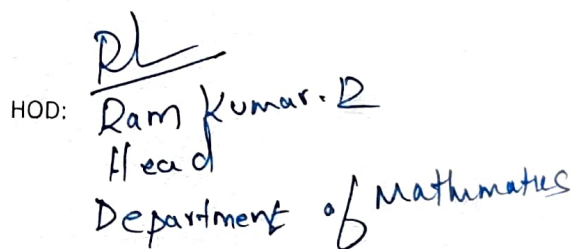 HOD: Ram Kumar. R
Head
Department of Mathematics